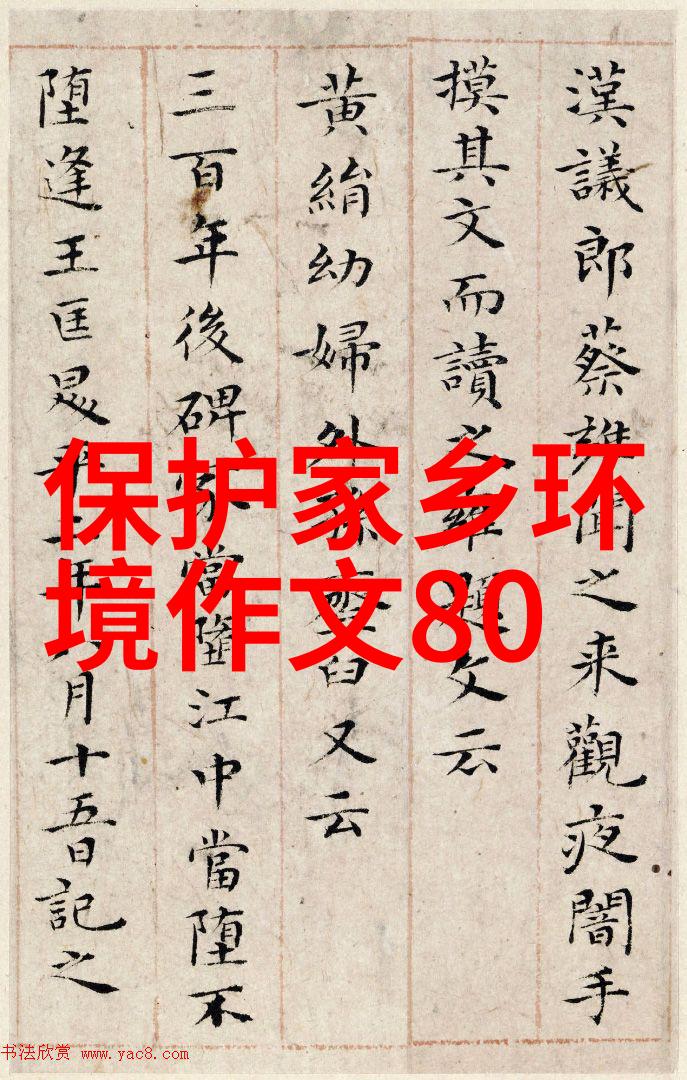 漢議郎蔡雍聞之来觀夜闇手
摸其文而讀之雍題文云
黄絹幼婦外孫臼又云
三百年後碑冢當墮江中當堕不
堕逢王匡二年八月十五日記之
保护家乡环
境作文80
书法欣赏 www.yac8.com